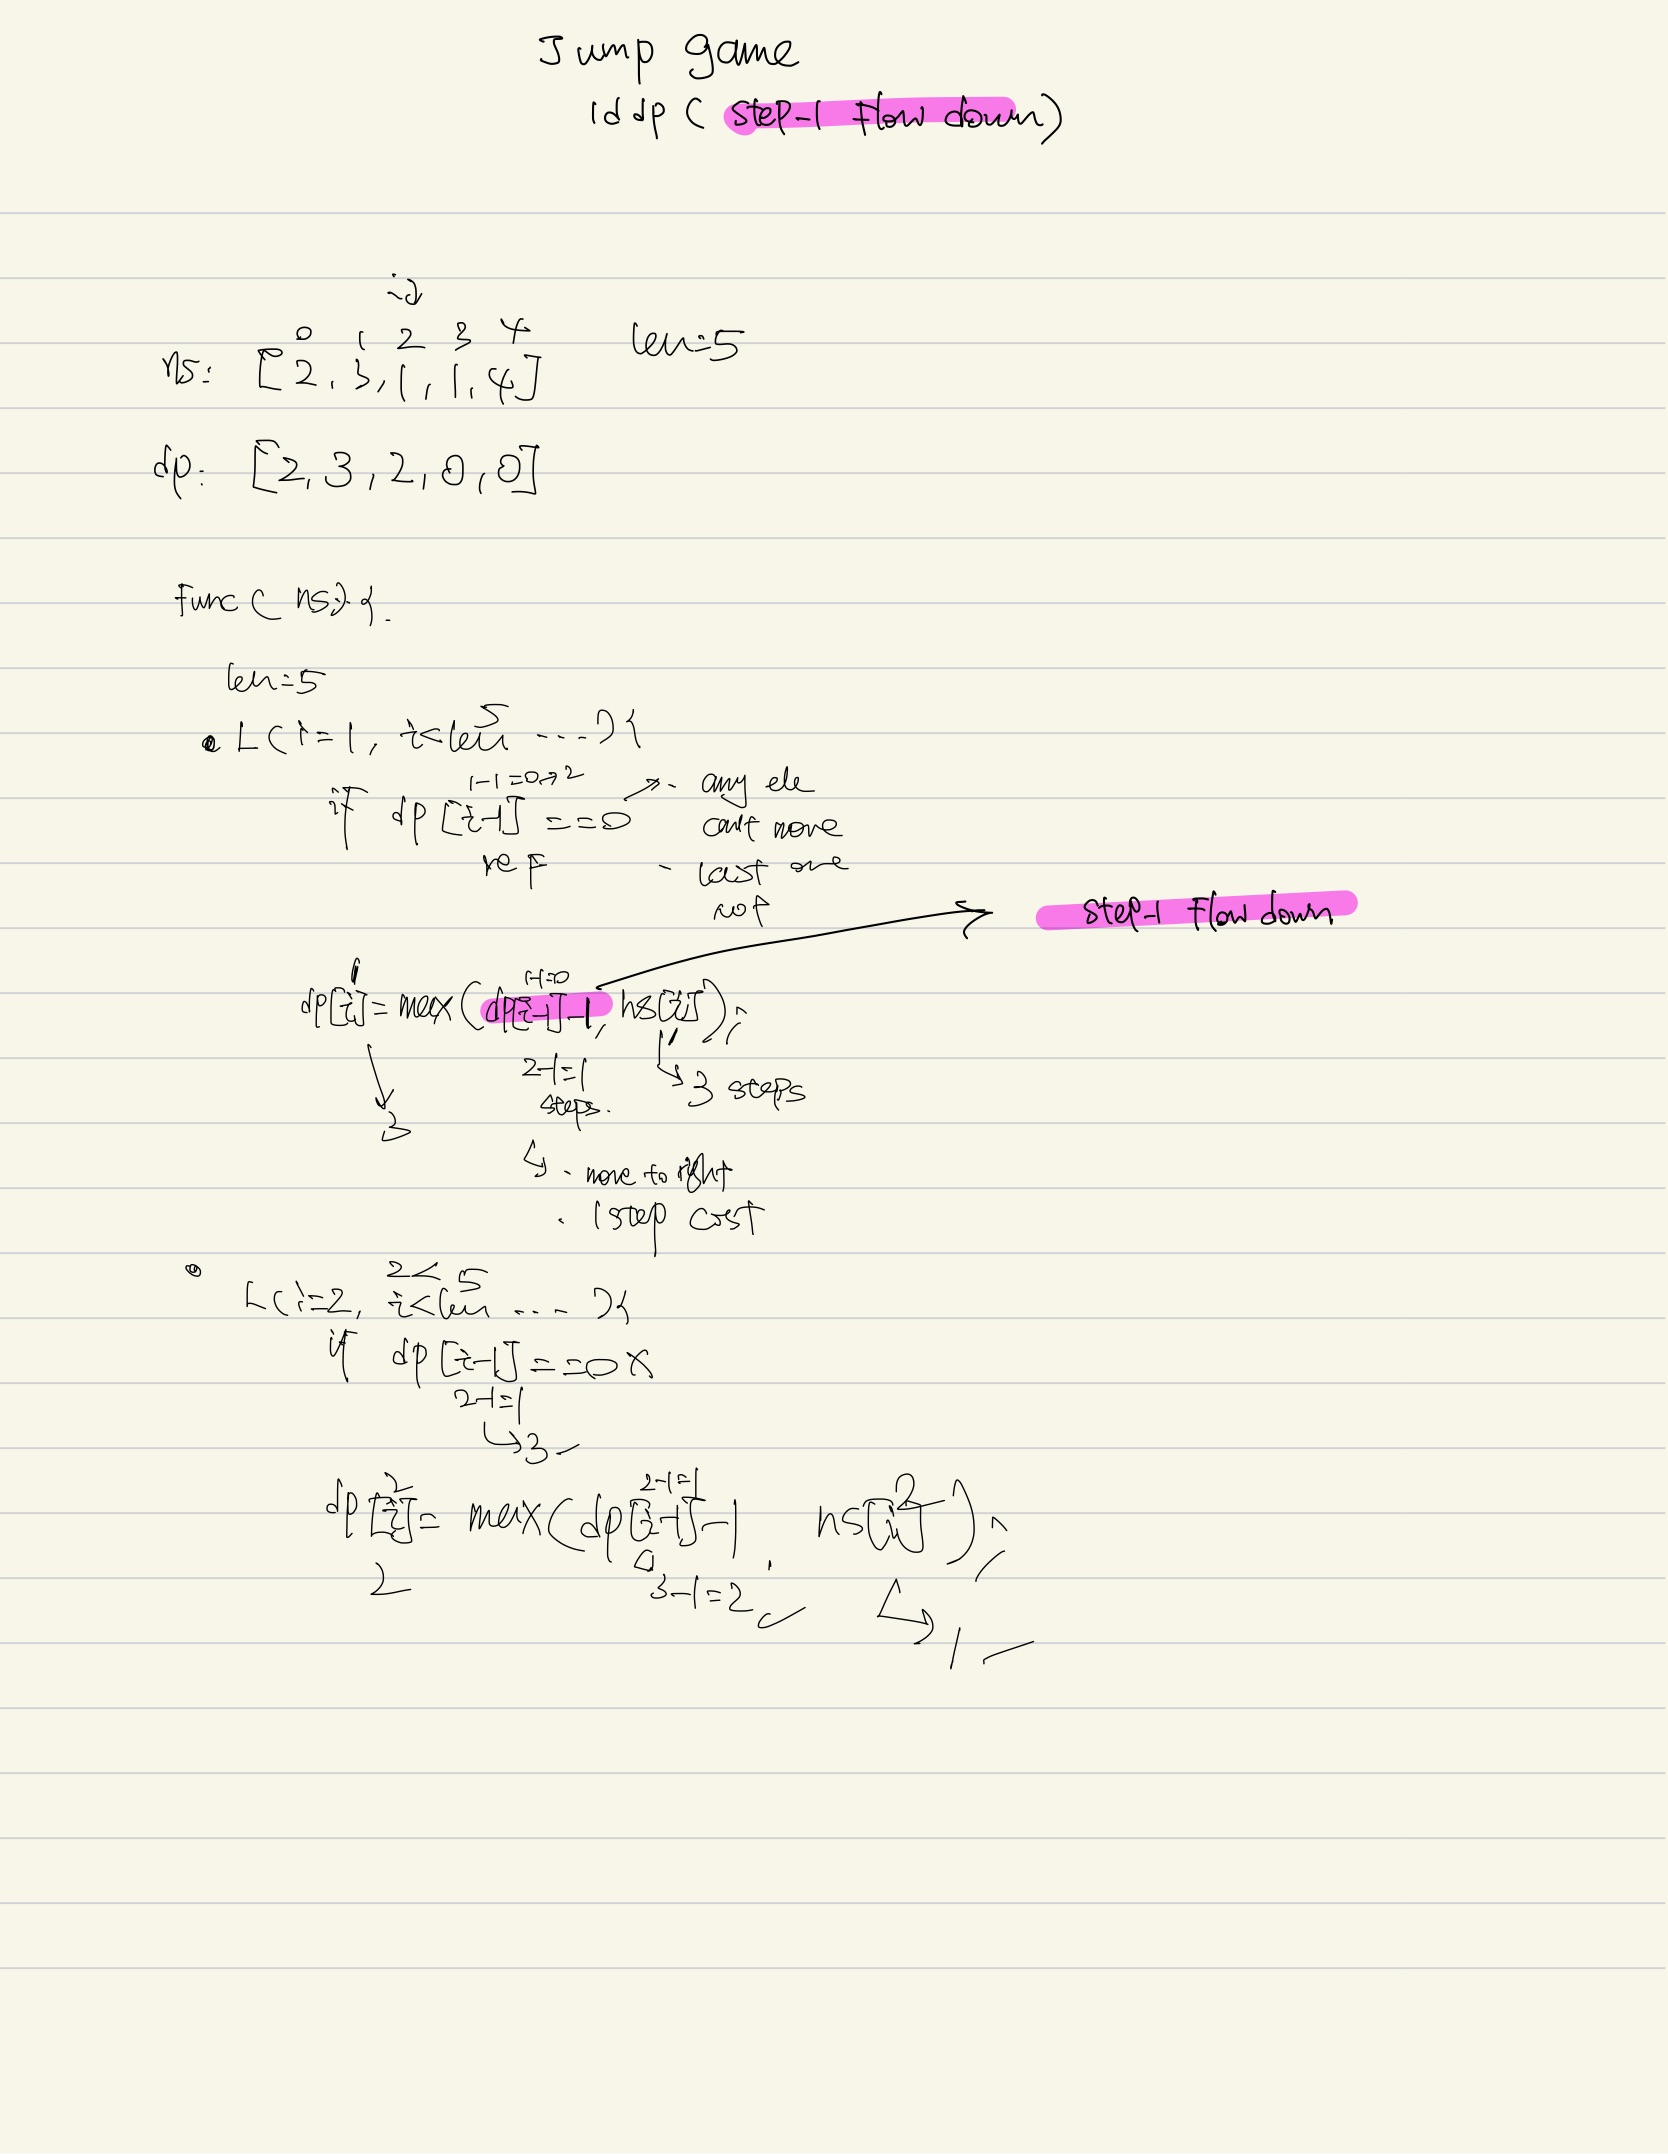 Jump game
1d dp ( step-1 flow down)
i→
0 1 2 3 4
len=5
ns: [2, 3, 1, 1, 4]
dp: [2, 3, 2, 0, 0]
func ( ns) {
len=5
5
• L(i=1, i<len ....){
1-1=0→2
if dp[i-1] ==0 → - any ele
can't move
ret F - last one
not
step-1 flow down
1 1-1=0
dp[i]= max(dp[i-1]-1, ns[i]);
2-1=1
steps.
3 steps
3
↳ - move to right
. 1 step cost
2< 5
• L(i=2, i<len .... ){
if dp[i-1] ==0 x
2-1=1
↳3
2 2-1=1 2
dp[i]= max(dp[i-1]-1, ns[i]);
2 3-1=2 ✓
↳ 1